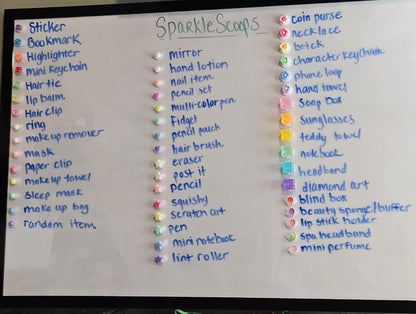 SparkleScoops
Sticker
Bookmark
Highlighter
mini keychain
Hair tie
lip balm
Hair clip
ring
makeup remover
mask
paper clip
makeup towel
sleep mask
make up bag
random item
mirror
hand lotion
nail item
pencil set
multi-color pen
Fidget
pencil pouch
hair brush
eraser
post it
pencil
squishy
scratch art
pen
mini notebook
lint roller
coin purse
necklace
brick
character keychain
phone loop
hand towel
soap box
sunglasses
teddy towel
notebook
headband
diamond art
blind box
beauty sponge/buffer
lip stick holder
spa headband
mini perfume